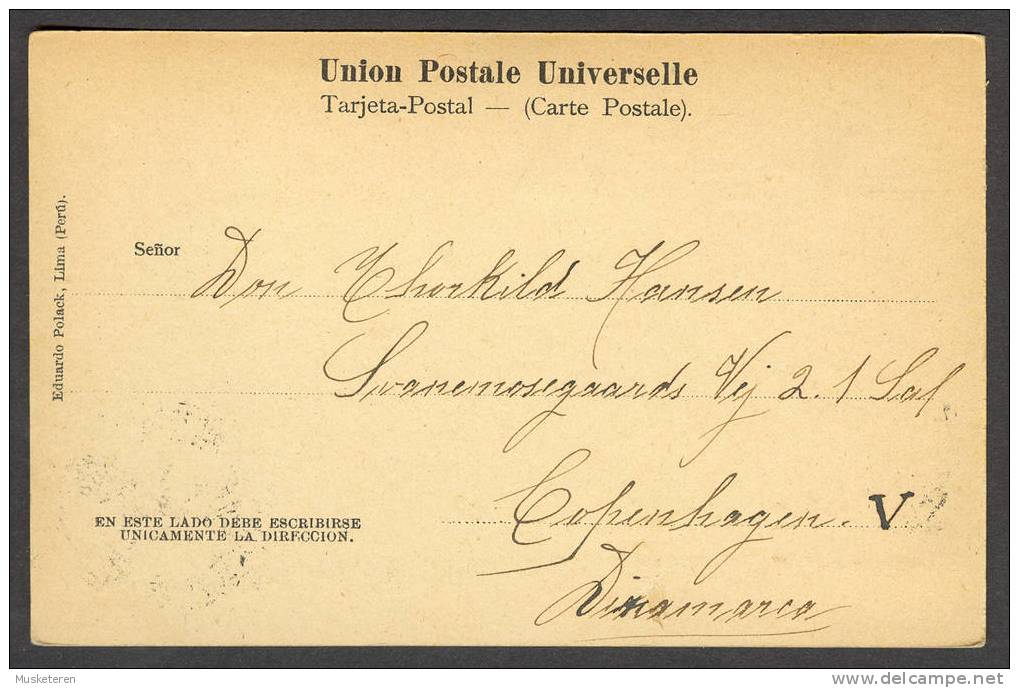 Union Postale Universelle
Tarjeta-Postal — (Carte Postale).
Eduardo Polack, Lima (Perú).
Señor Don Thorkild Hansen
Svanemosegaards Vej 2. 1 Sal
Copenhagen. V
EN ESTE LADO DEBE ESCRIBIRSE
UNICAMENTE LA DIRECCION.
Dinamarca
Musketeren
delcampe.net